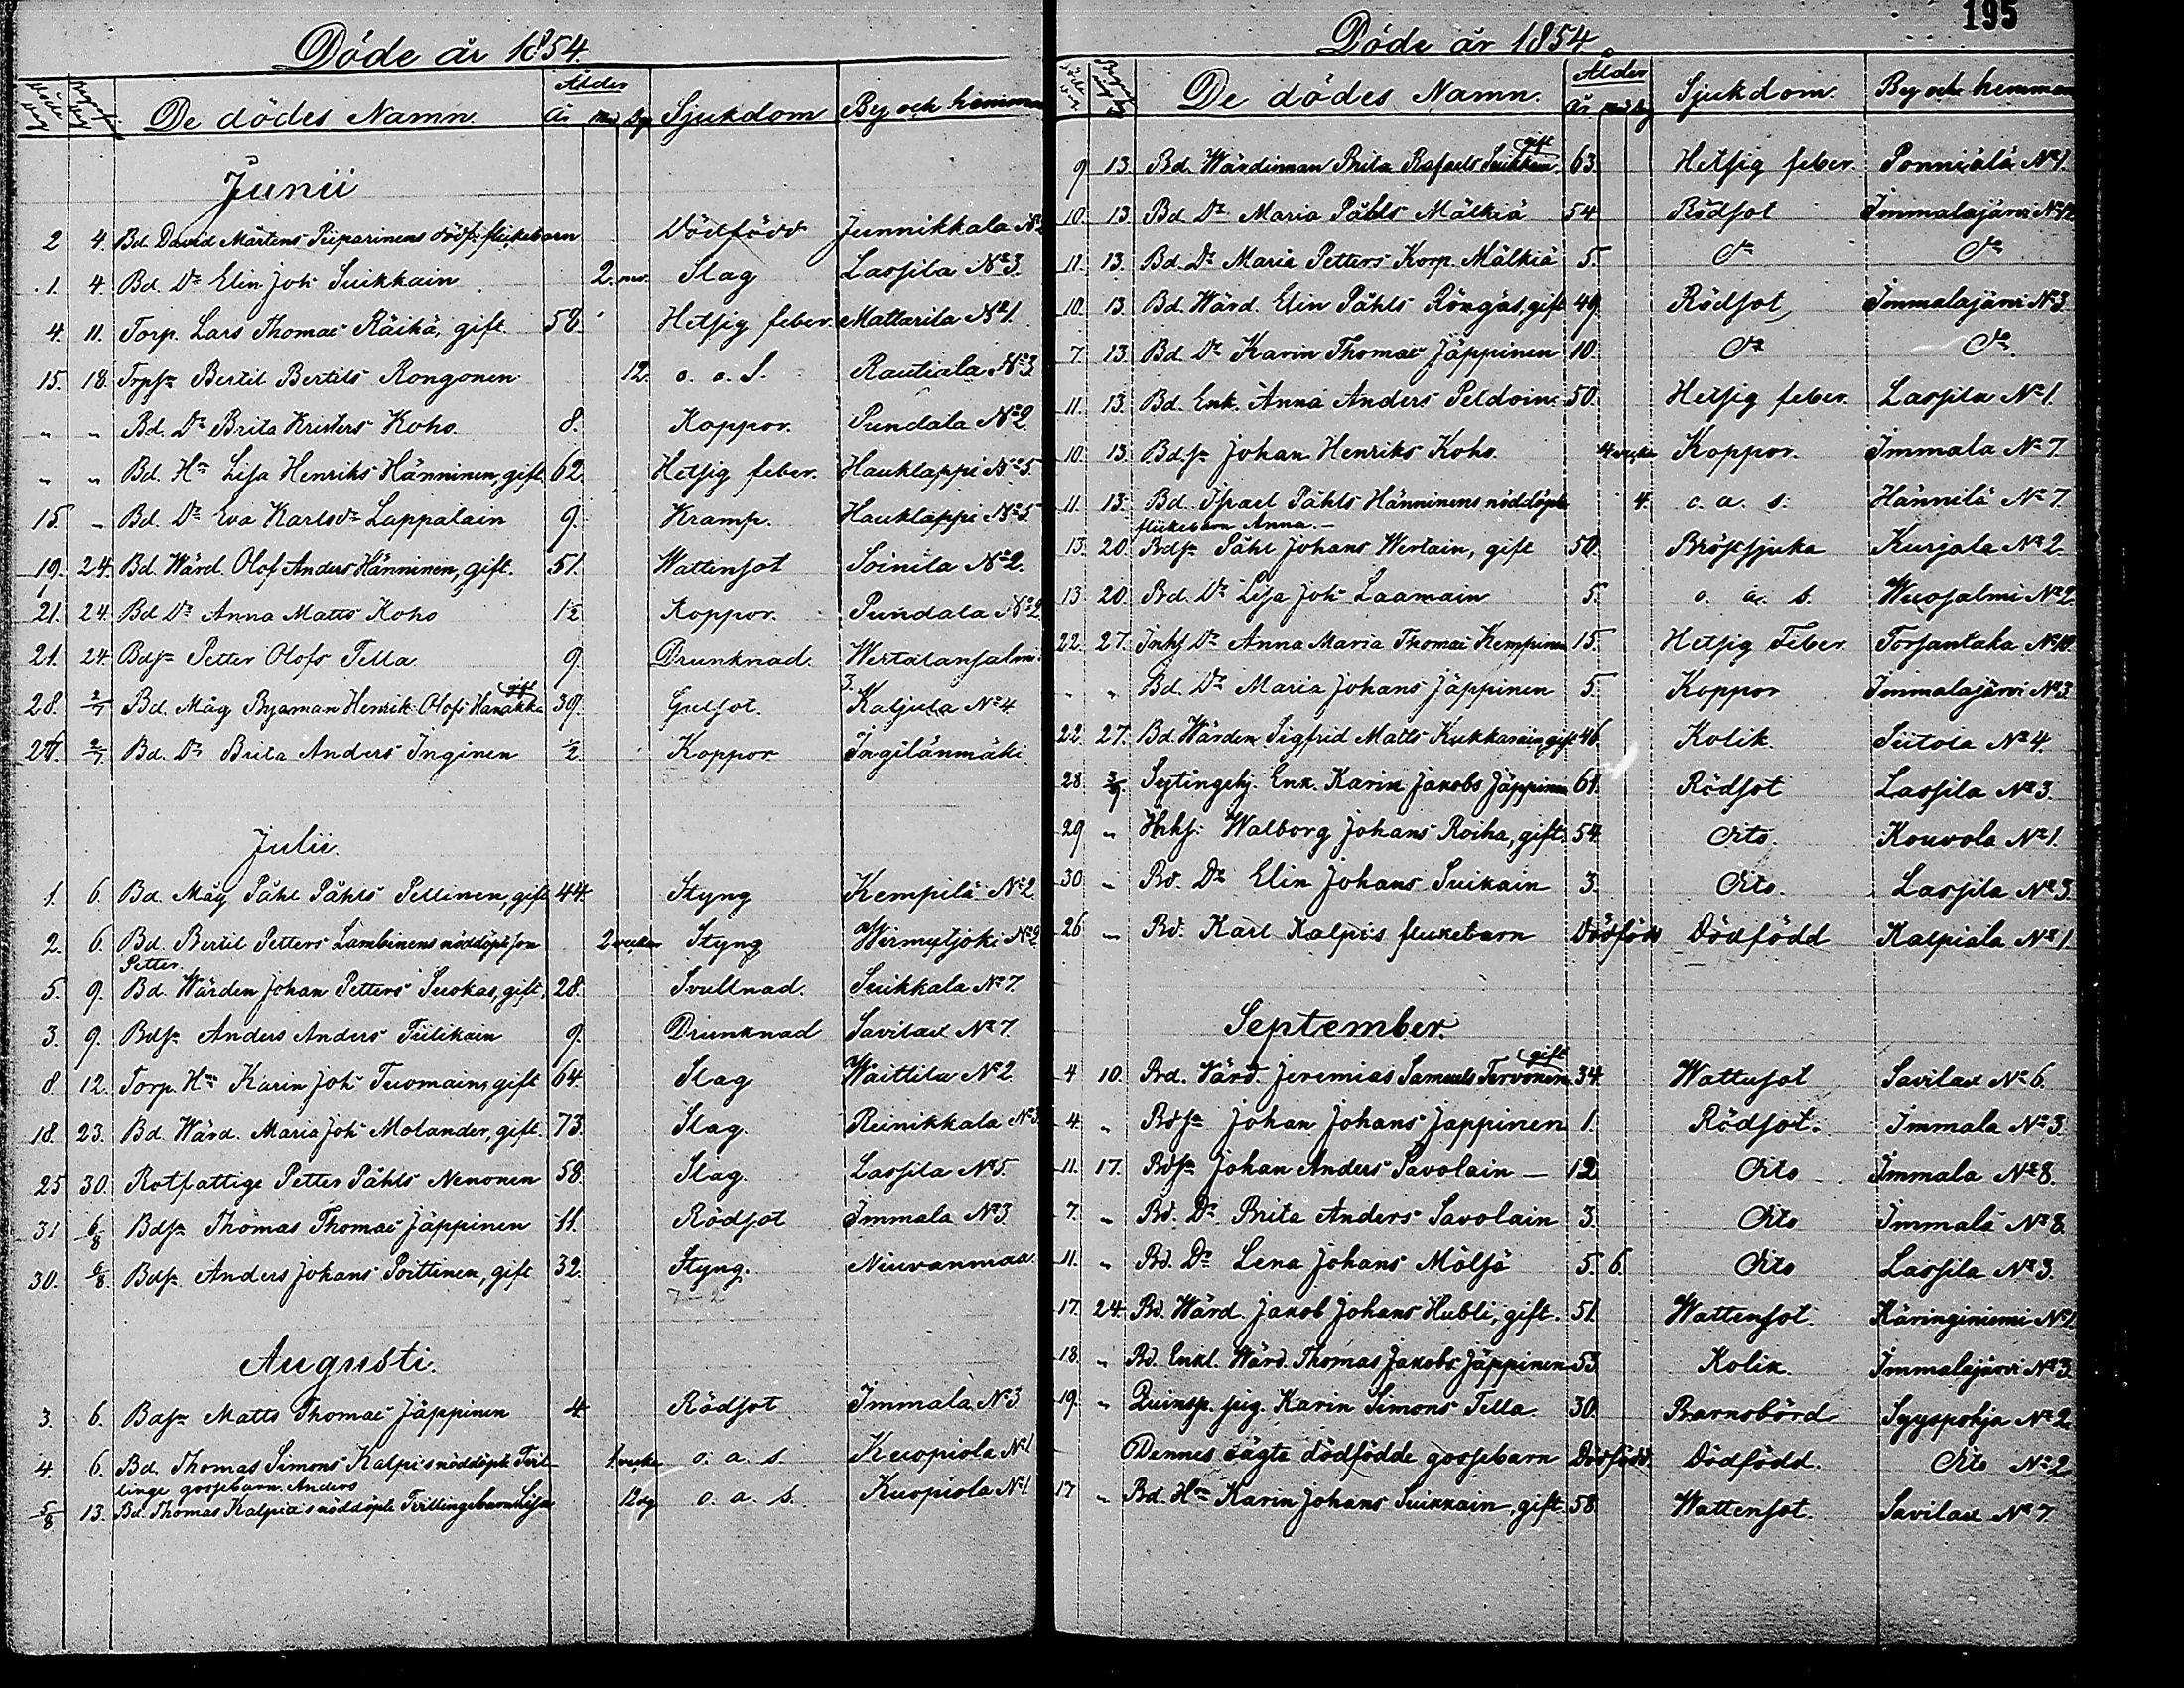 Döde år 1854.
Döde dag Begrafn. dag De dödes Namn. Ålder år md dg Sjukdom By och hemman
Junii
2 4. Bd. David Mårtens Piiparinens dödf. flickebarn Dödfödd Junnikkala No
1. 4. Bd. Dr Elin Joh: Suikkain 2. md. Slag Lassila No 3.
4. 11. Torp. Lars Thomae Räikä, gift. 58 Hetsig feber. Mattarila No 1.
15. 18. Trpsn Bertil Bertils Rongonen 12. o. a. s. Rautiala No 3
" " Bd. Dr Brita Kristers Koho. 8. Koppor. Pundala No 2
" " Bd. Hu Lisa Henriks Hänninen, gift. 62 Hetsig feber. Hauklappi No 5.
15 " Bd. Dr Eva Karlsdr Lappalain 9. Kramp. Hauklappi No 5
19. 24. Bd. Wärd. Olof Anders Hänninen, gift. 51. Wattensot Soinila No 2.
21. 24. Bd Dr Anna Matts Koho 1/2 Koppor. Pundala No 2
21. 24 Bdsn Petter Olofs Tella 9. Drunknad. Wertalansalmi
28. 2/7 Bd. Måg Byaman Henrik Olofs Hanakka gift 39. Gulsot. 3. Kaljula No 4.
28. 2/7 Bd. Dr Brita Anders Inginen 1/2 Koppor Ingilänmäki
Julii.
1. 6. Bd. Måg Påhl Påhls Pellinen, gift 44. Styng Kempilä No 2
2. 6. Bd. Bertil Petters Lambinens nöddöpte son 2 veckor Styng Wirmytjoki No 2
Petter.
5. 9. Bd. Wärden Johan Petters Suokas, gift. 28. Svullnad. Suikkala No 7.
3. 9. Bdsn Anders Anders Tiilikain 9. Drunknad Savilax No 7.
8 12. Torp. Hu Karin Joh: Tuomain, gift 64. Slag Waittila No 2
18. 23. Bd. Wärd. Maria Joh: Molander, gift. 73. Slag. Reinikkala No 3
25 30. Rotfattige Petter Påhls Nenonen 58. Slag. Lassila No 5.
31 6/8 Bdsn Thomas Thomae Jäppinen 11. Rödsot Immala No 3.
30. 6/8. Bdsn Anders Johans Poittinen, gift 32. Styng. Niuvanmaa
Augusti.
3. 6. Bdsn Matts Thomae Jäppinen 4. Rödsot Immala No 3
4. 6. Bd. Thomas Simons Kalpis nöddöpte Tvil- 1 vecka o. a. s. Kuopiola No 1
linge gossebarn Anders
5/8 13. Bd. Thomas Kalpia's nöddöpte Tvillingebarn Lisa 12 dg o. a. s. Kuopiola No 1.
195
Döde år 1854.
Döde dag Begrafn. dag De dödes Namn. Ålder år md dg Sjukdom. By och hemman
9 13. Bd. Wärdinnan Brita Rafaels Suikkain gift 63. Hetsig feber. Ponniälä No 1.
10. 13. Bd. Dr Maria Påhls Mälkiä 54 Rödsot Immalajärvi No 12
11. 13. Bd. Dr Maria Petters Korp. Mälkiä 5. Do Do
10. 13. Bd. Wärd. Elin Påhls Röngäs, gift 49. Rödsot Immalajärvi No 3
7. 13. Bd. Dr Karin Thomae Jäppinen 10. Do Do.
11. 13. Bd. Enk. Anna Anders Peldoin. 50. Hetsig feber. Lassila No 1.
10. 13. Bdsn Johan Henriks Koho. 4 veckor Koppor. Immala No 7.
11. 13. Bd. Israel Påhls Hänninens nöddöpte 4. o. a. s. Hännilä No 7.
flickebarn Anna.
13. 20. Bdsn Påhl Johans Wertain, gift 50. Bröstsjuka Kurjala No 2.
13 20. Bd. Dr Lisa Joh: Laamain 5. o. a. s. Wuosalmi No 2.
22. 27. Inhs Dr Anna Maria Thomae Kempinen 15. Hetsig Feber. Torsantaka No 10.
" " Bd. Dr Maria Johans Jäppinen 5. Koppor Immalajärvi No 3
22. 27. Bd. Wärden Sigfrid Matts Kukkarain, gift 46 Kolik. Siitola No 4.
28 3/9 Sytingehj. Enk. Karin Jakobs Jäppinen 61. Rödsot Lassila No 3.
29 " Walborg Johans Roiha, gift. 54. Dito. Kouvola No 1.
30 " Bd. Dr Elin Johans Suikain 3. Dito. Lassila No 3.
26 " Bd. Karl Kalpis flickebarn Dödfödd Dödfödd Kalpiala No 1.
September.
4 10. Bd. Värd. Jeremias Samuels Tervonen gift 34. Wattusot Savilax No 6.
4. " Bdsn Johan Johans Jappinen 1. Rödsot. Immala No 3.
11. 17. Bdsn Johan Anders Savolain — 12 Dito Immala No 8.
7. " Bd. Dr Brita Anders Savolain 3. Dito Immala No 8.
11. " Bd. Dr Lena Johans Mölsä 5. 6. Dito Lassila No 3.
17. 24. Bd. Wärd. Jakob Johans Hubli, gift. 51. Wattensot. Käringiniemi No 1
18. " Bd. Enkl. Wärd. Thomas Jakobs Jäppinen 53. Kolik. Immalajärvi No 3.
19. " Quinsp. pig. Karin Simons Tella 30. Barnsbörd Syyspohja No 2
Dennes oägta dödfödde gossebarn Dödfödd Dödfödd. Dito No 2
17 " Bd. Hu Karin Johans Suikkain, gift. 58. Wattensot. Savilax No 7.